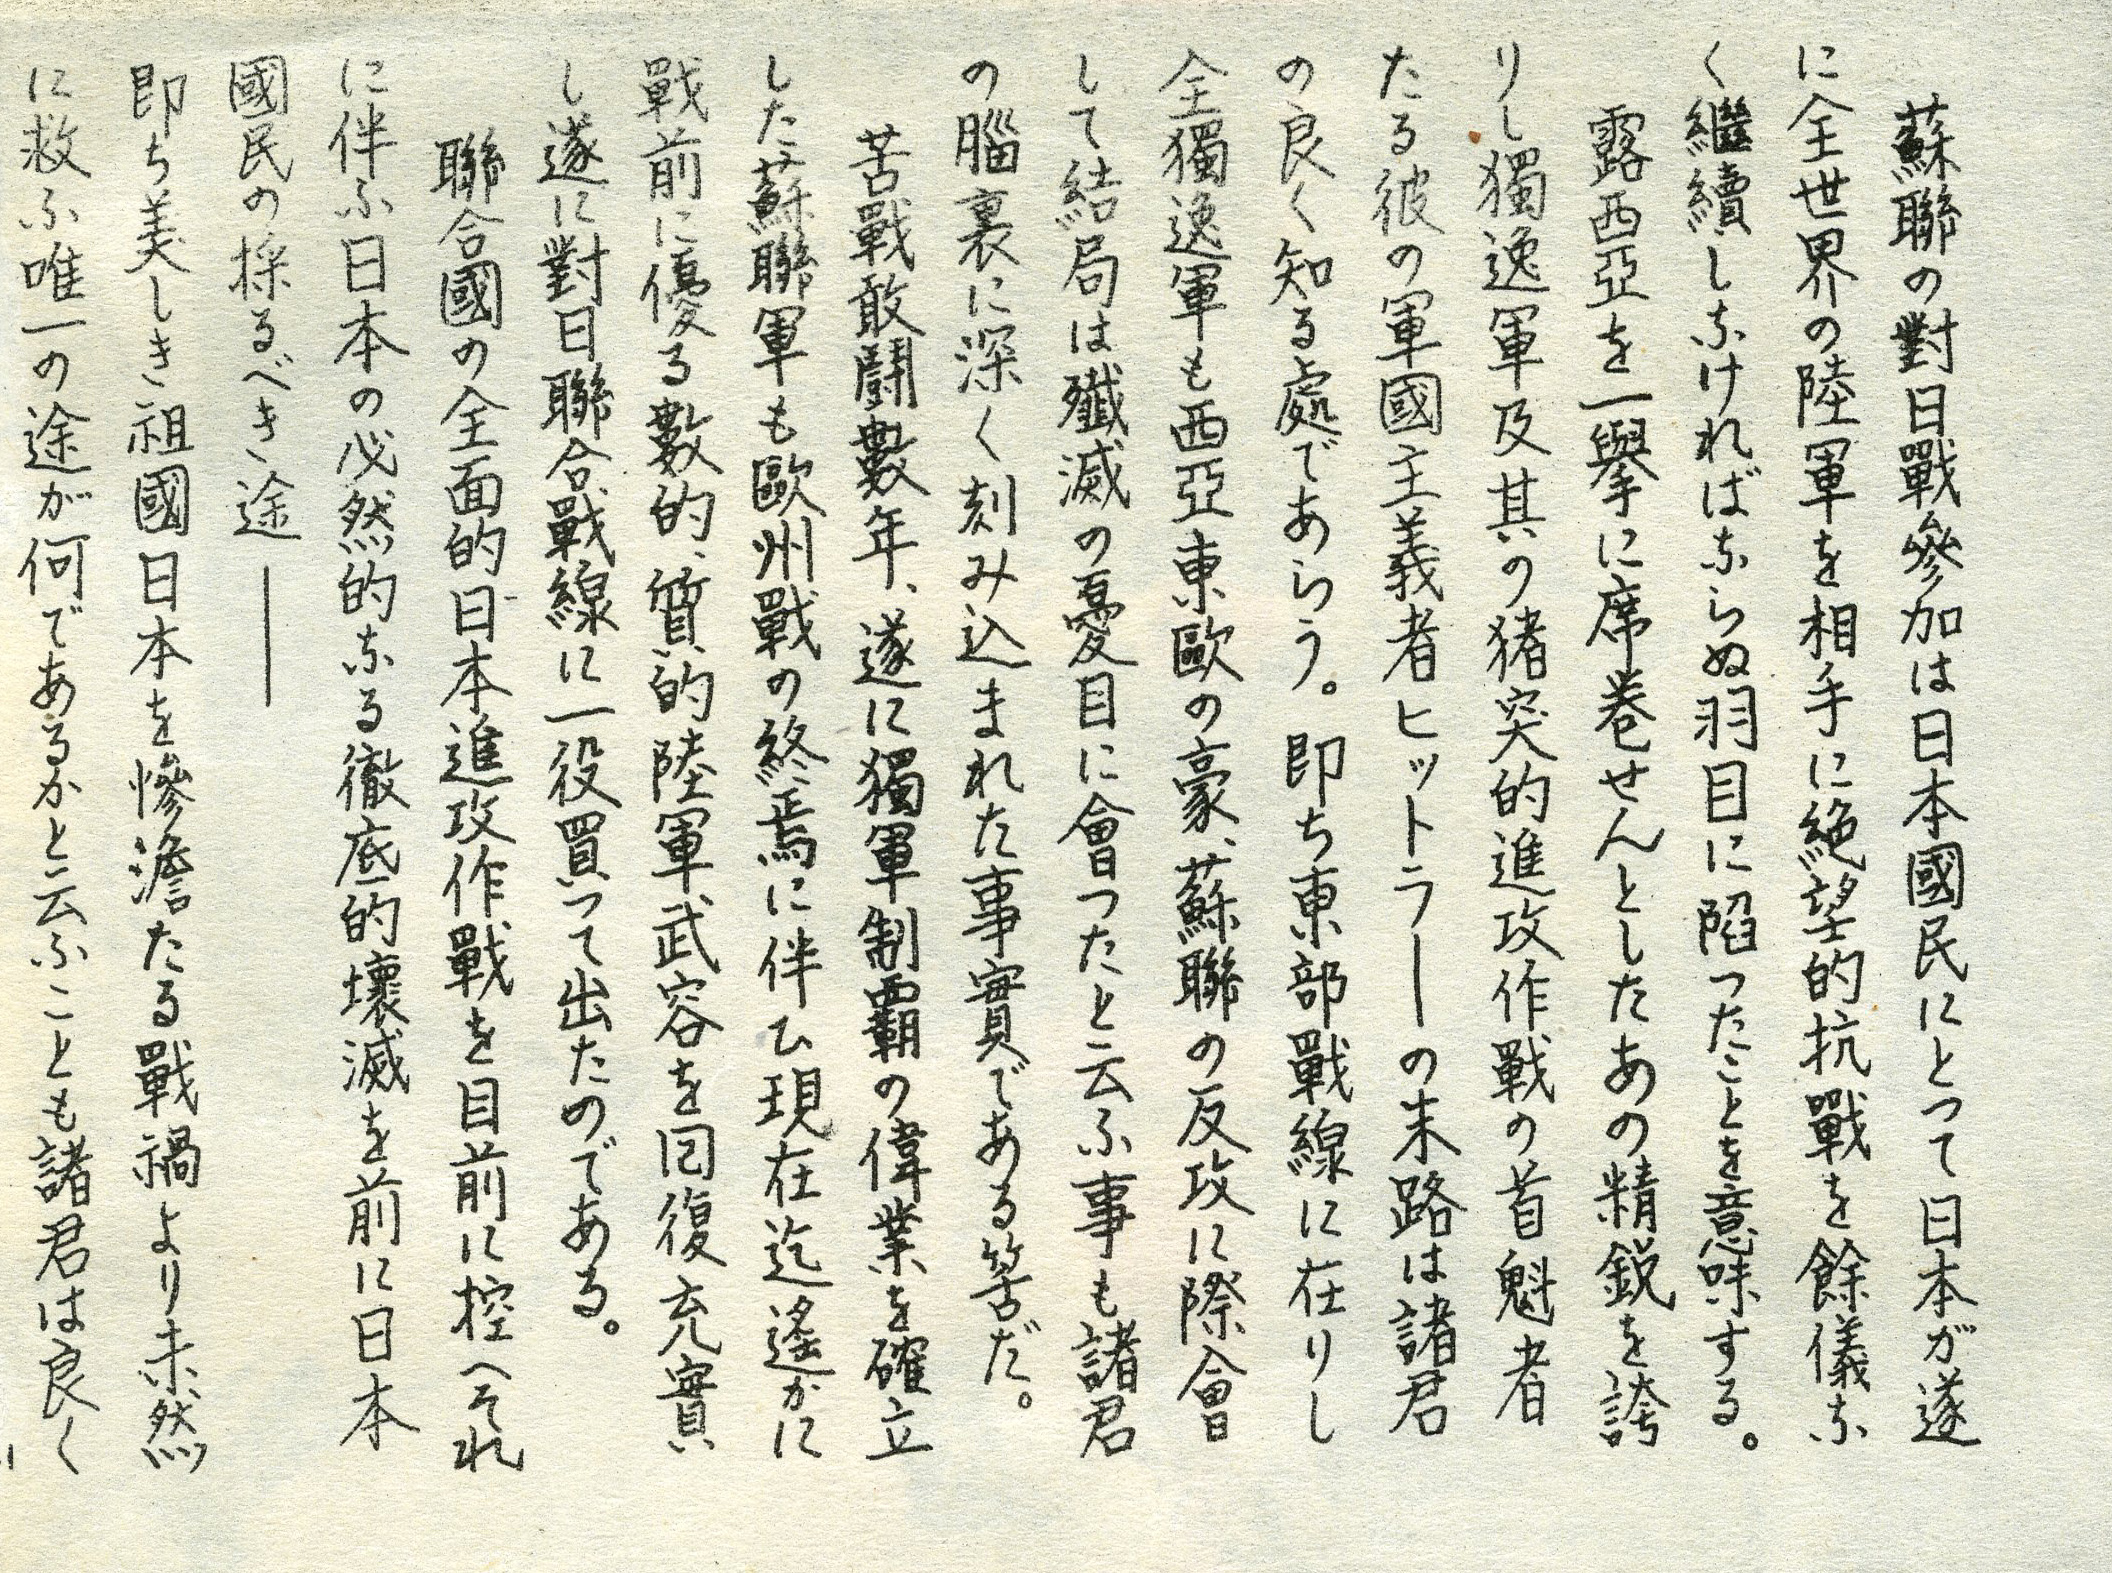 蘇聯の對日戰參加は日本國民にとつて日本が遂
に全世界の陸軍を相手に絶望的抗戰を餘儀な
く繼續しなければならぬ羽目に陷つたことを意味する。
露西亞を一擧に席巻せんとしたあの精鋭を誇
りし獨逸軍及其の猪突的進攻作戰の首魁者
たる彼の軍國主義者ヒットラーの末路は諸君
の良く知る處であらう。即ち東部戰線に在りし
全獨逸軍も西亞東歐の豪、蘇聯の反攻に際會
して結局は殲滅の憂目に會つたと云ふ事も諸君
の腦裏に深く刻み込まれた事實である筈だ。
苦戰敢鬪數年、遂に獨軍制覇の偉業を確立
した蘇聯軍も歐州戰の終焉に伴ひ現在迄遙かに
戰前に優る數的、質的陸軍武容を回復充實
し遂に對日聯合戰線に一役買つて出たのである。
聯合國の全面的日本進攻作戰を目前に控へそれ
に伴ふ日本の必然的なる徹底的壞滅を前に日本
國民の採るべき途――
即ち美しき祖國日本を慘澹たる戰禍より未然
に救ふ唯一の途が何であるかと云ふことも諸君は良く